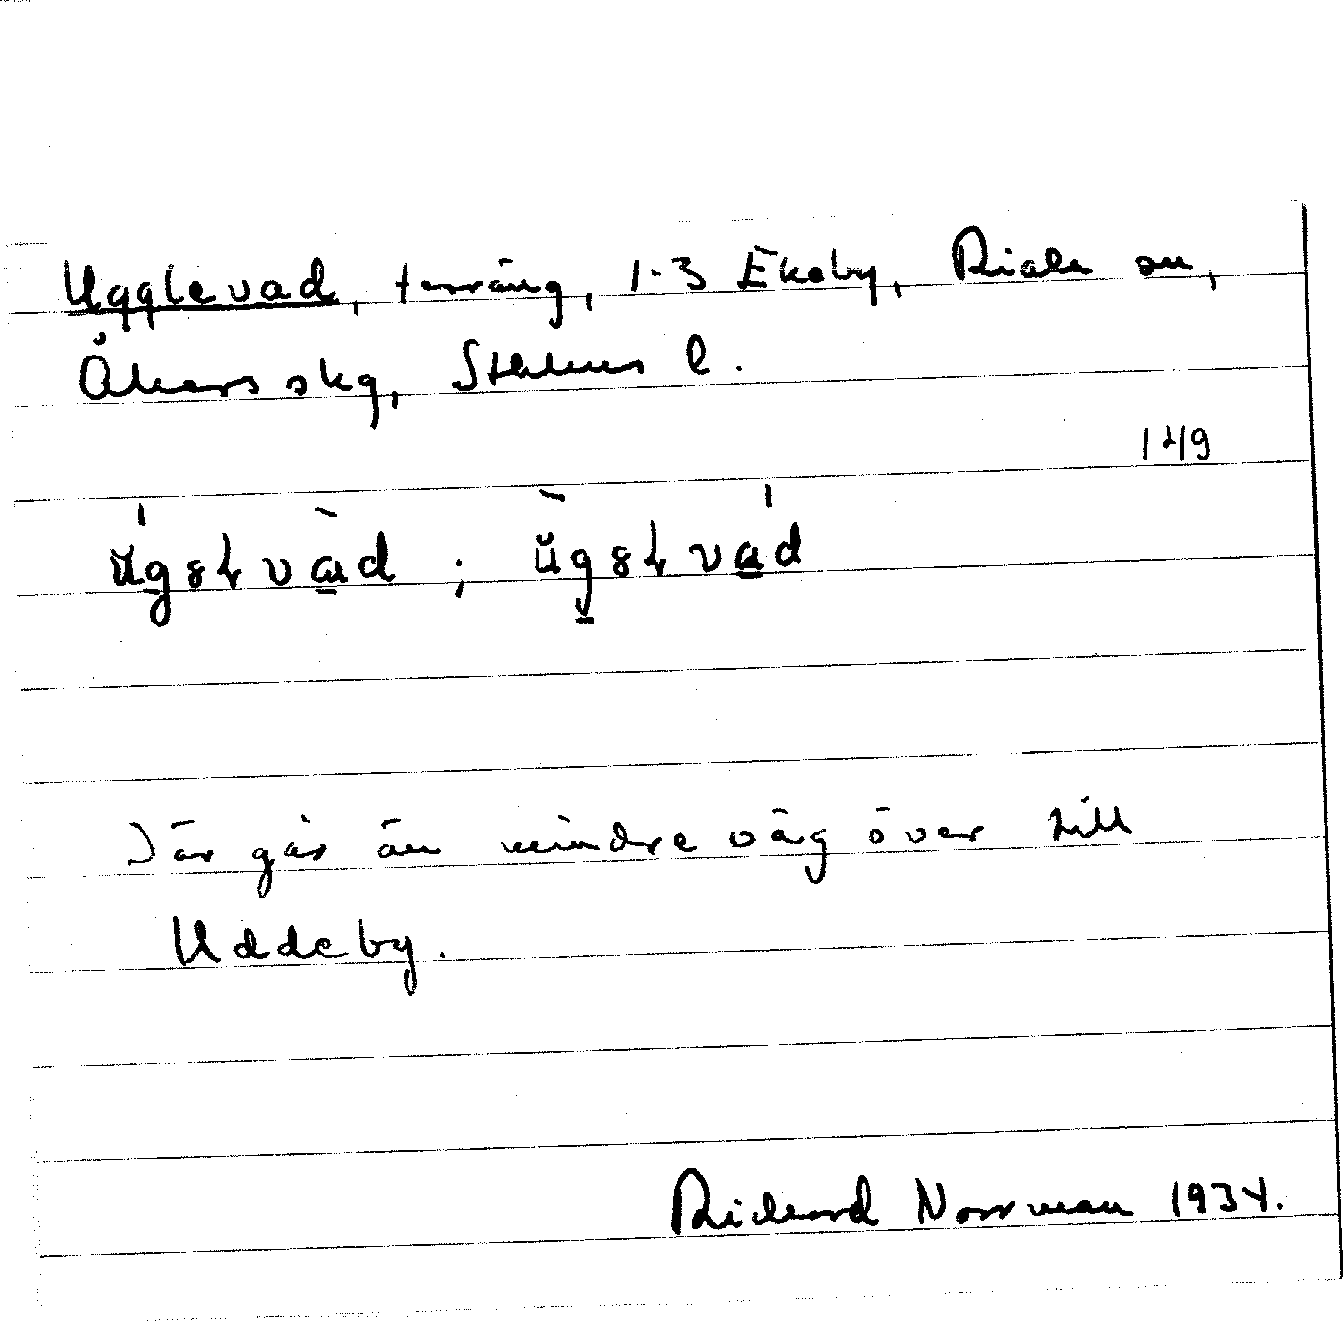 Ugglevad, terräng, 1-3 Ekeby, Riala sn,
Åkers skg, Sthlms l.
149
Där går än mindre väg över till
Uddeby.
Richard Norrman 1934.